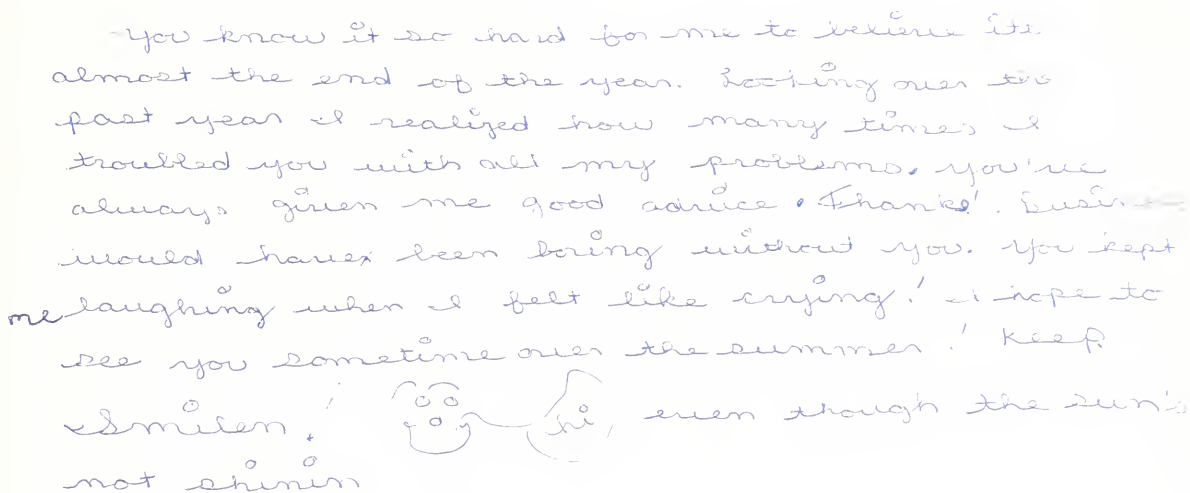 You know it so hard for me to believe its
almost the end of the year. Looking over the
past year I realized how many times I
troubled you with all my problems. You've
always given me good advice. Thanks!
would have been boring without you. You kept
me laughing when I felt like crying! I hope to
see you sometime over the summer! Keep
Smilen! hi even though the sun's
not shinin